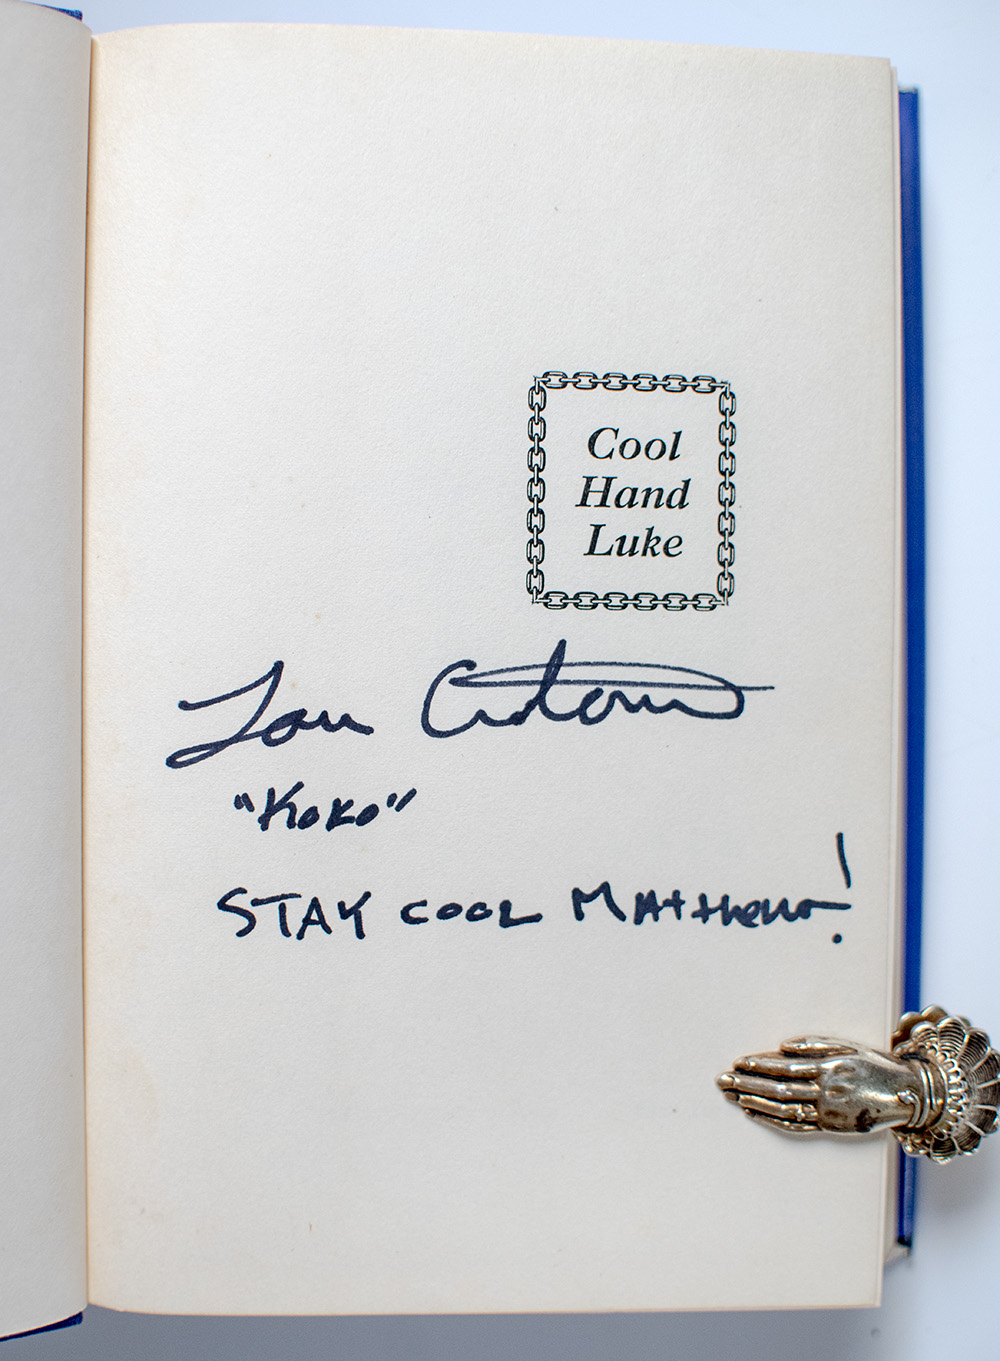 Cool
Hand
Luke
Lou Antonio
"Koko"
STAY COOL Matthew!